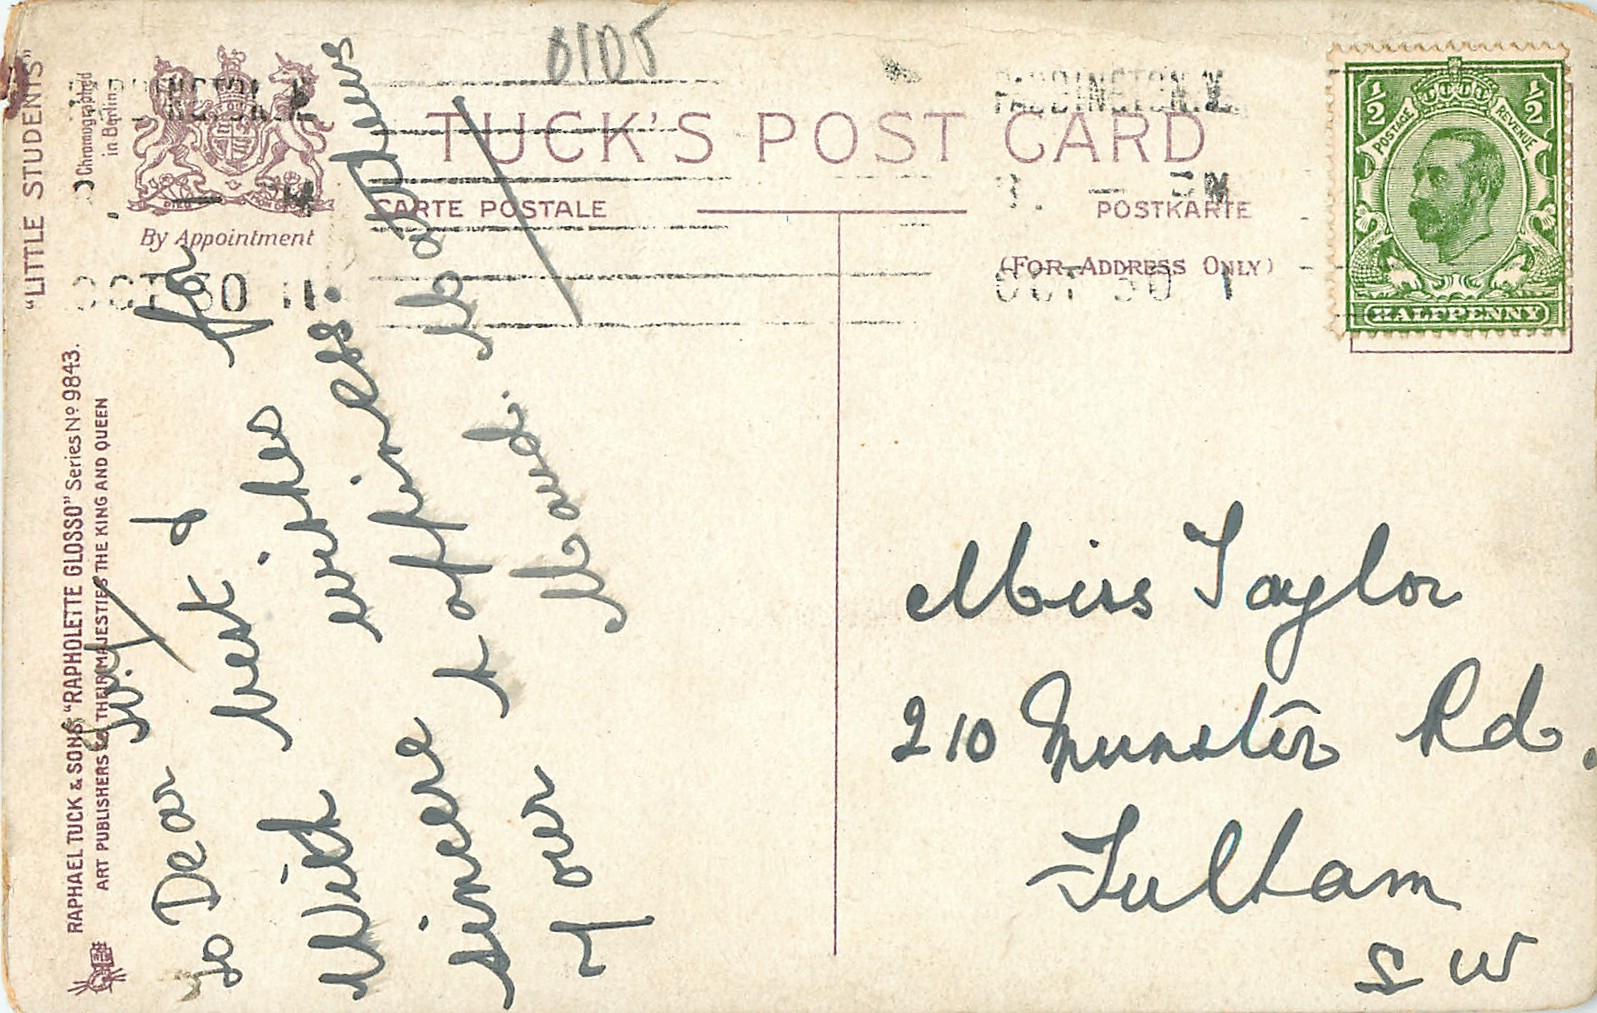 "LITTLE STUDENTS"
Chromographed
in Berlin
RAPHAEL TUCK & SONS' "RAPHOLETTE GLOSSO" Series Nº 9843.
ART PUBLISHERS TO THEIR MAJESTIES THE KING AND QUEEN
By Appointment
TUCK'S POST CARD
CARTE POSTALE
POSTKARTE
(FOR ADDRESS ONLY)
PADDINGTON. W.
OCT 30 11
PADDINGTON. W.
OCT 30 1
½ ½
POSTAGE REVENUE
HALFPENNY
To Dear Lily
With best &
sincere wishes for
Your happiness.
Maud. Matthews
Miss Taylor
210 Munster Rd.
Fulham
S W